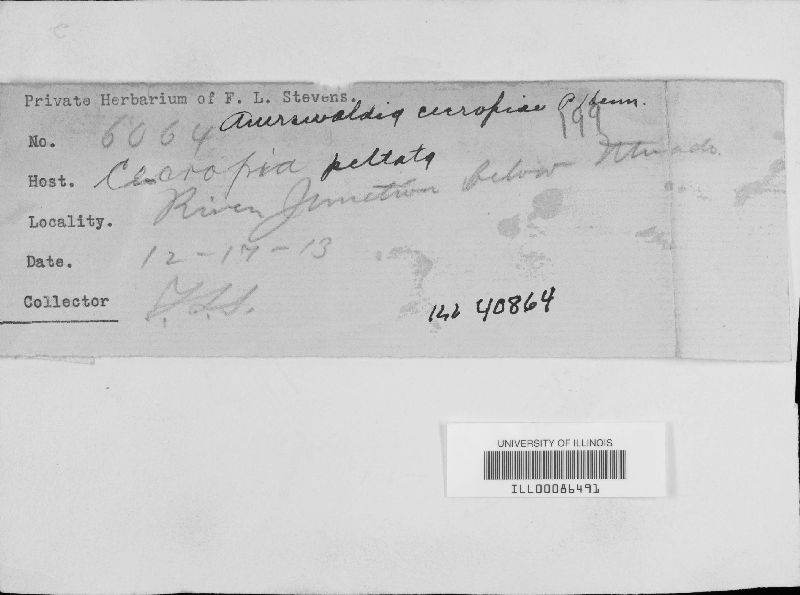 Private Herbarium of F. L. Stevens.
Auerswaldia cecropiae P. Henn.
No. 6064
199
Host. Cecropia peltata
Locality. River Junction below Utuado
Date. 12-17-13
Collector F.L.S.
Ill 40864
UNIVERSITY OF ILLINOIS
ILL00086491